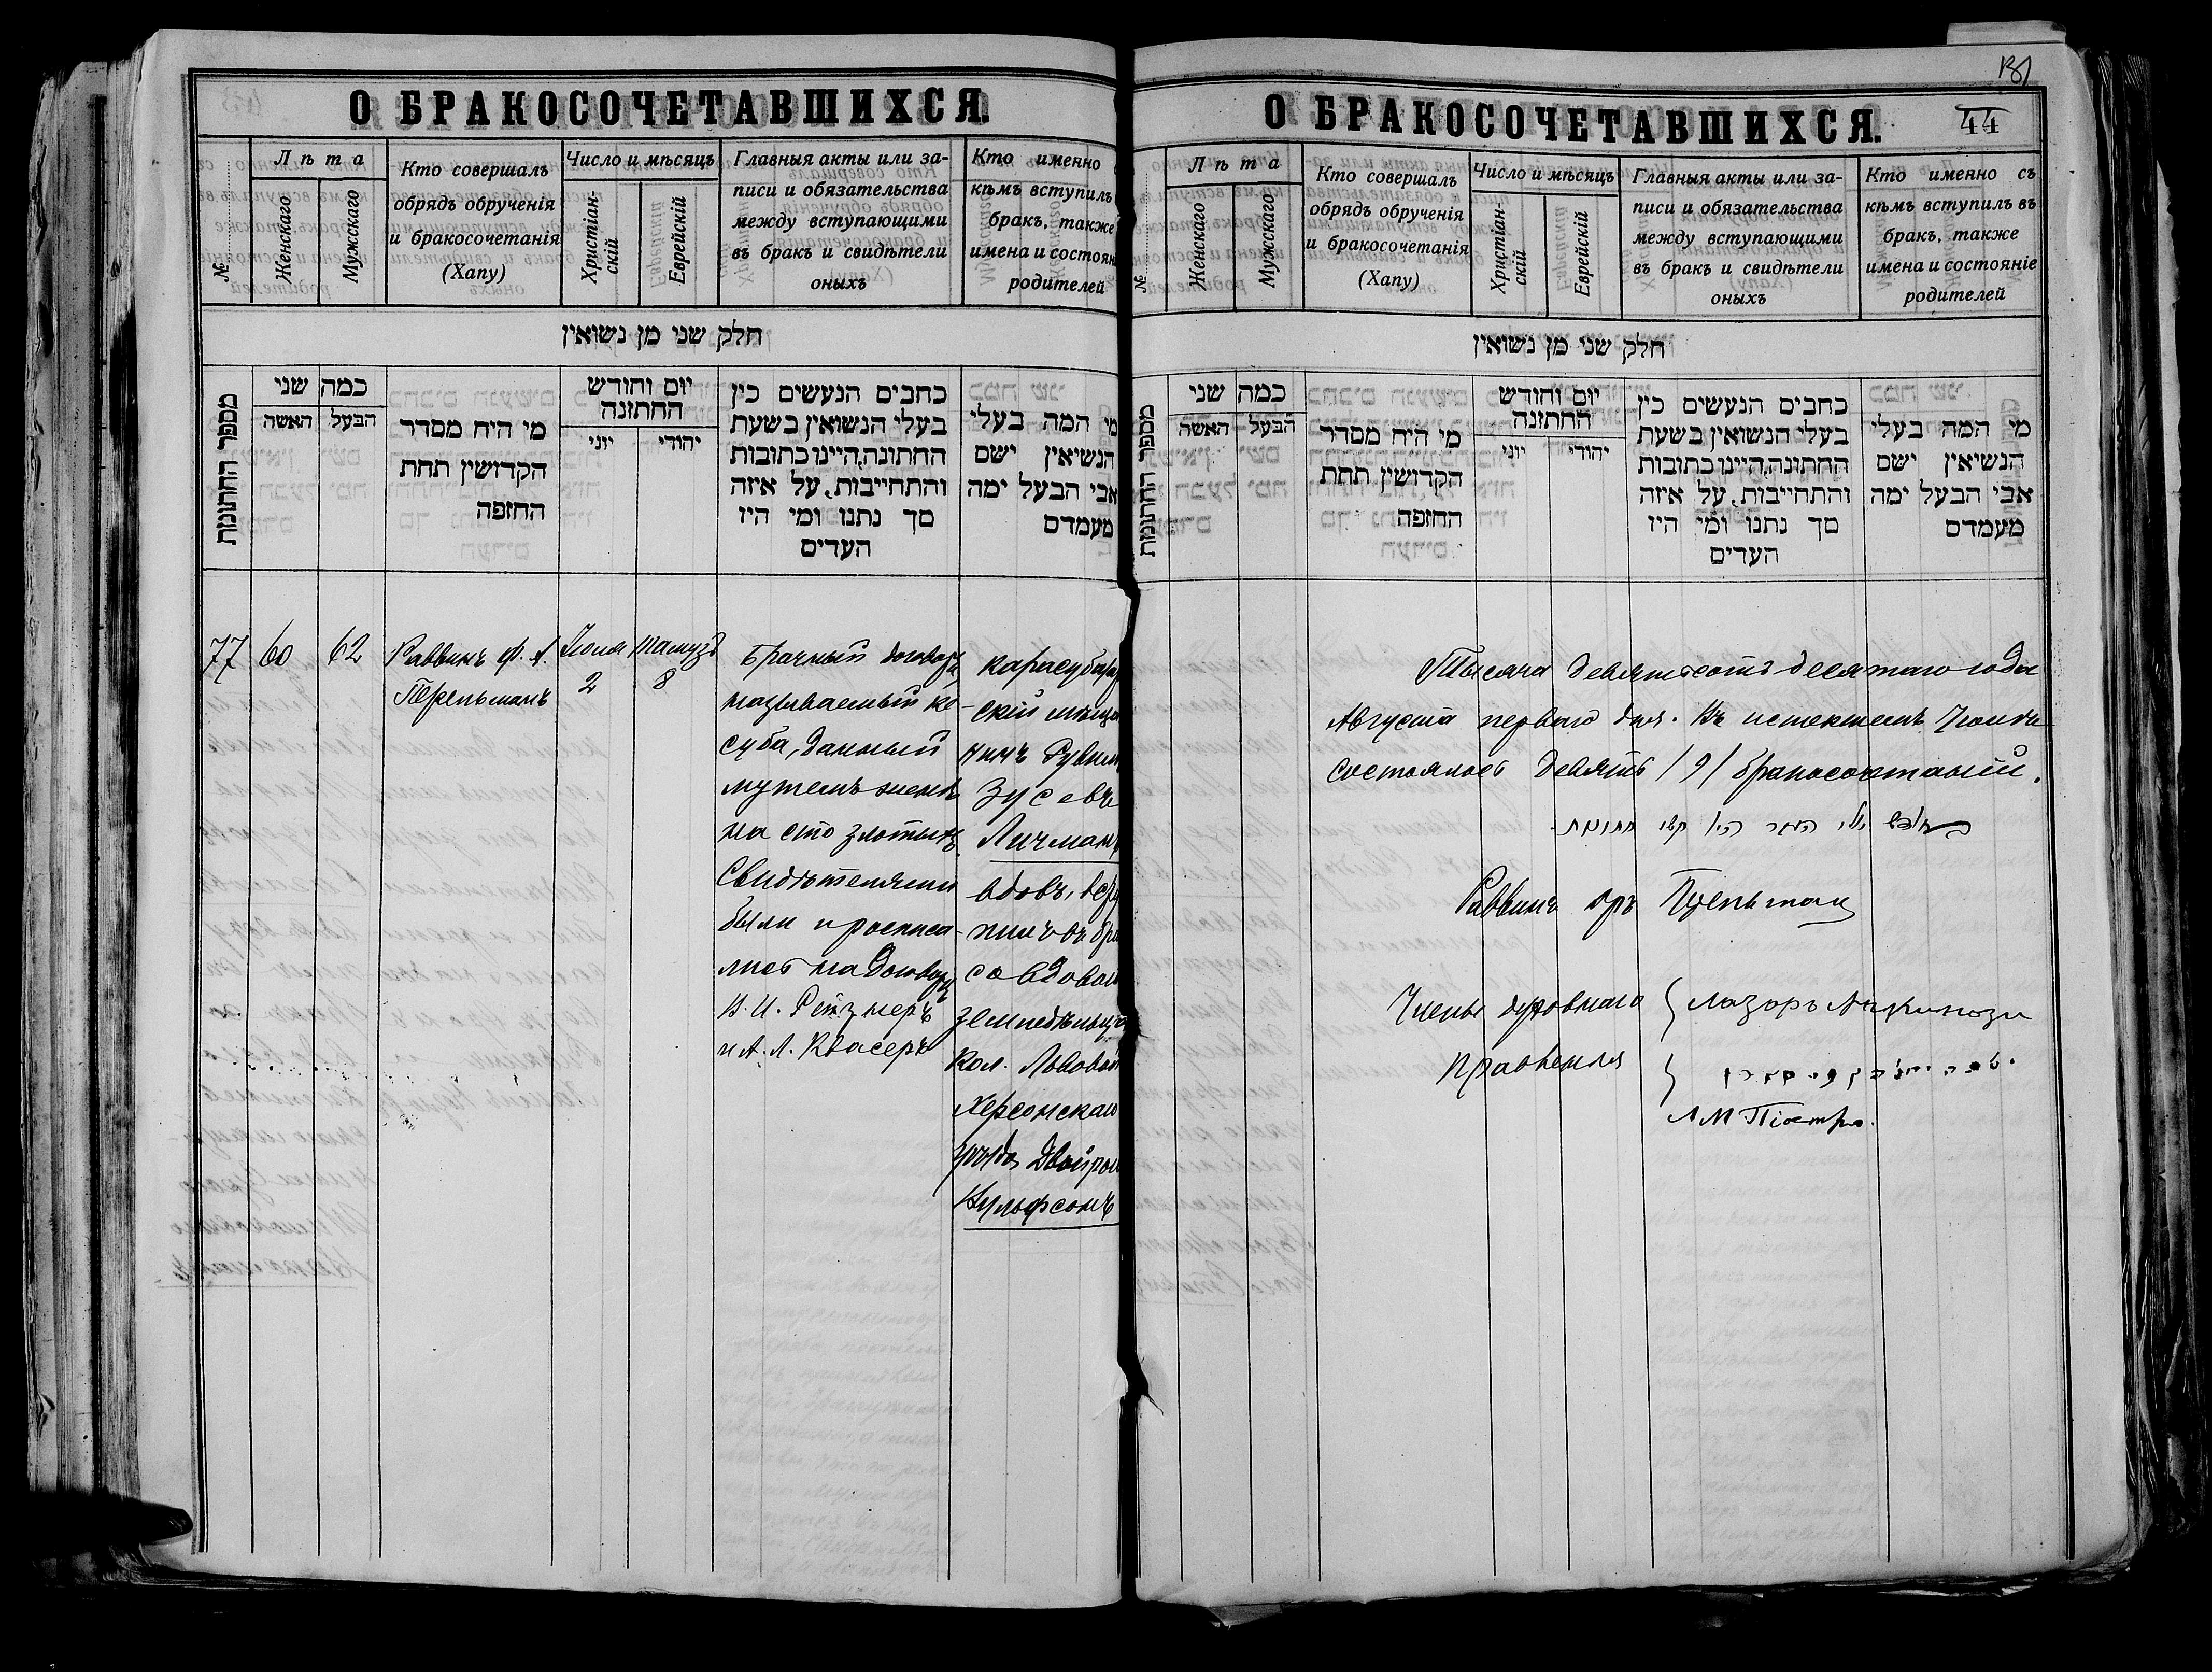 О БРАКОСОЧЕТАВШИХСЯ.
№
Лѣта
Женскаго
Мужскаго
Кто совершалъ
обрядъ обрученія
и бракосочетанія
(Хапу)
Число и мѣсяцъ
Христіан-
скій
Еврейскій
Главныя акты или за-
писи и обязательства
между вступающими
въ бракъ и свидѣтели
оныхъ
Кто именно
кѣмъ вступилъ
бракъ, также
имена и состоян
родителей
חלק שני מן נשואין
מספר החתונות
כמה שני
האשה
הבעל
מי היח מסדר
הקדושין תחת
החופה
יום וחודש
החתונה
יוני
יהודי
כחבים הנעשים כין
בעלי הנשואין בשעת
החתונה,היינו כתובות
והתחייבות, על איזה
סך נתנו ומי היו
העדים
מי המה בעלי
הנשיאין ישם
אבי הבעל ימה
מעמדם
77
60
62
Раввинъ Ф. А.
Перельманъ
Іюля
2
Тамузъ
8
Брачный договоръ,
называемый ке-
суба, данный
мужемъ женѣ
на сто злотыхъ.
Свидѣтелями
были и росписа-
лись на договорѣ
В. И. Ретznеръ
и А. Л. Квасеръ
Карасубазар
скій мѣща
нинъ Рувим
Зусевъ
Личман
вдовъ, всту
пилъ въ бра
со вдовою
земледѣльца
кол. Львовой
Херсонскаго
уѣзда Двойрою
Вульфсонъ
131
О БРАКОСОЧЕТАВШИХСЯ.
44
№
Лѣта
Женскаго
Мужскаго
Кто совершалъ
обрядъ обрученія
и бракосочетанія
(Хапу)
Число и мѣсяцъ
Христіан-
скій
Еврейскій
Главныя акты или за-
писи и обязательства
между вступающими
въ бракъ и свидѣтели
оныхъ
Кто именно съ
кѣмъ вступилъ въ
бракъ, также
имена и состояніе
родителей
חלק שני מן נשואין
מספר החתונות
כמה שני
האשה
הבעל
מי היח מסדר
הקדושין תחת
החופה
יום וחודש
החתונה
יוני
יהודי
כחבים הנעשים כין
בעלי הנשואין בשעת
החתונה,היינו כתובות
והתחייבות, על איזה
סך נתנו ומי היו
העדים
מי המה בעלי
הנשיאין ישם
אבי הבעל ימה
מעמדם
Тысяча девятьсотъ десятаго года
Августа перваго дня. Въ истекшемъ Іюлѣ
состоялось девять /9/ бракосочетаній.
חתונות
Раввинъ дръ Перельман
Члены духовнаго
Правленія
Лазарь
Л М Піастро.